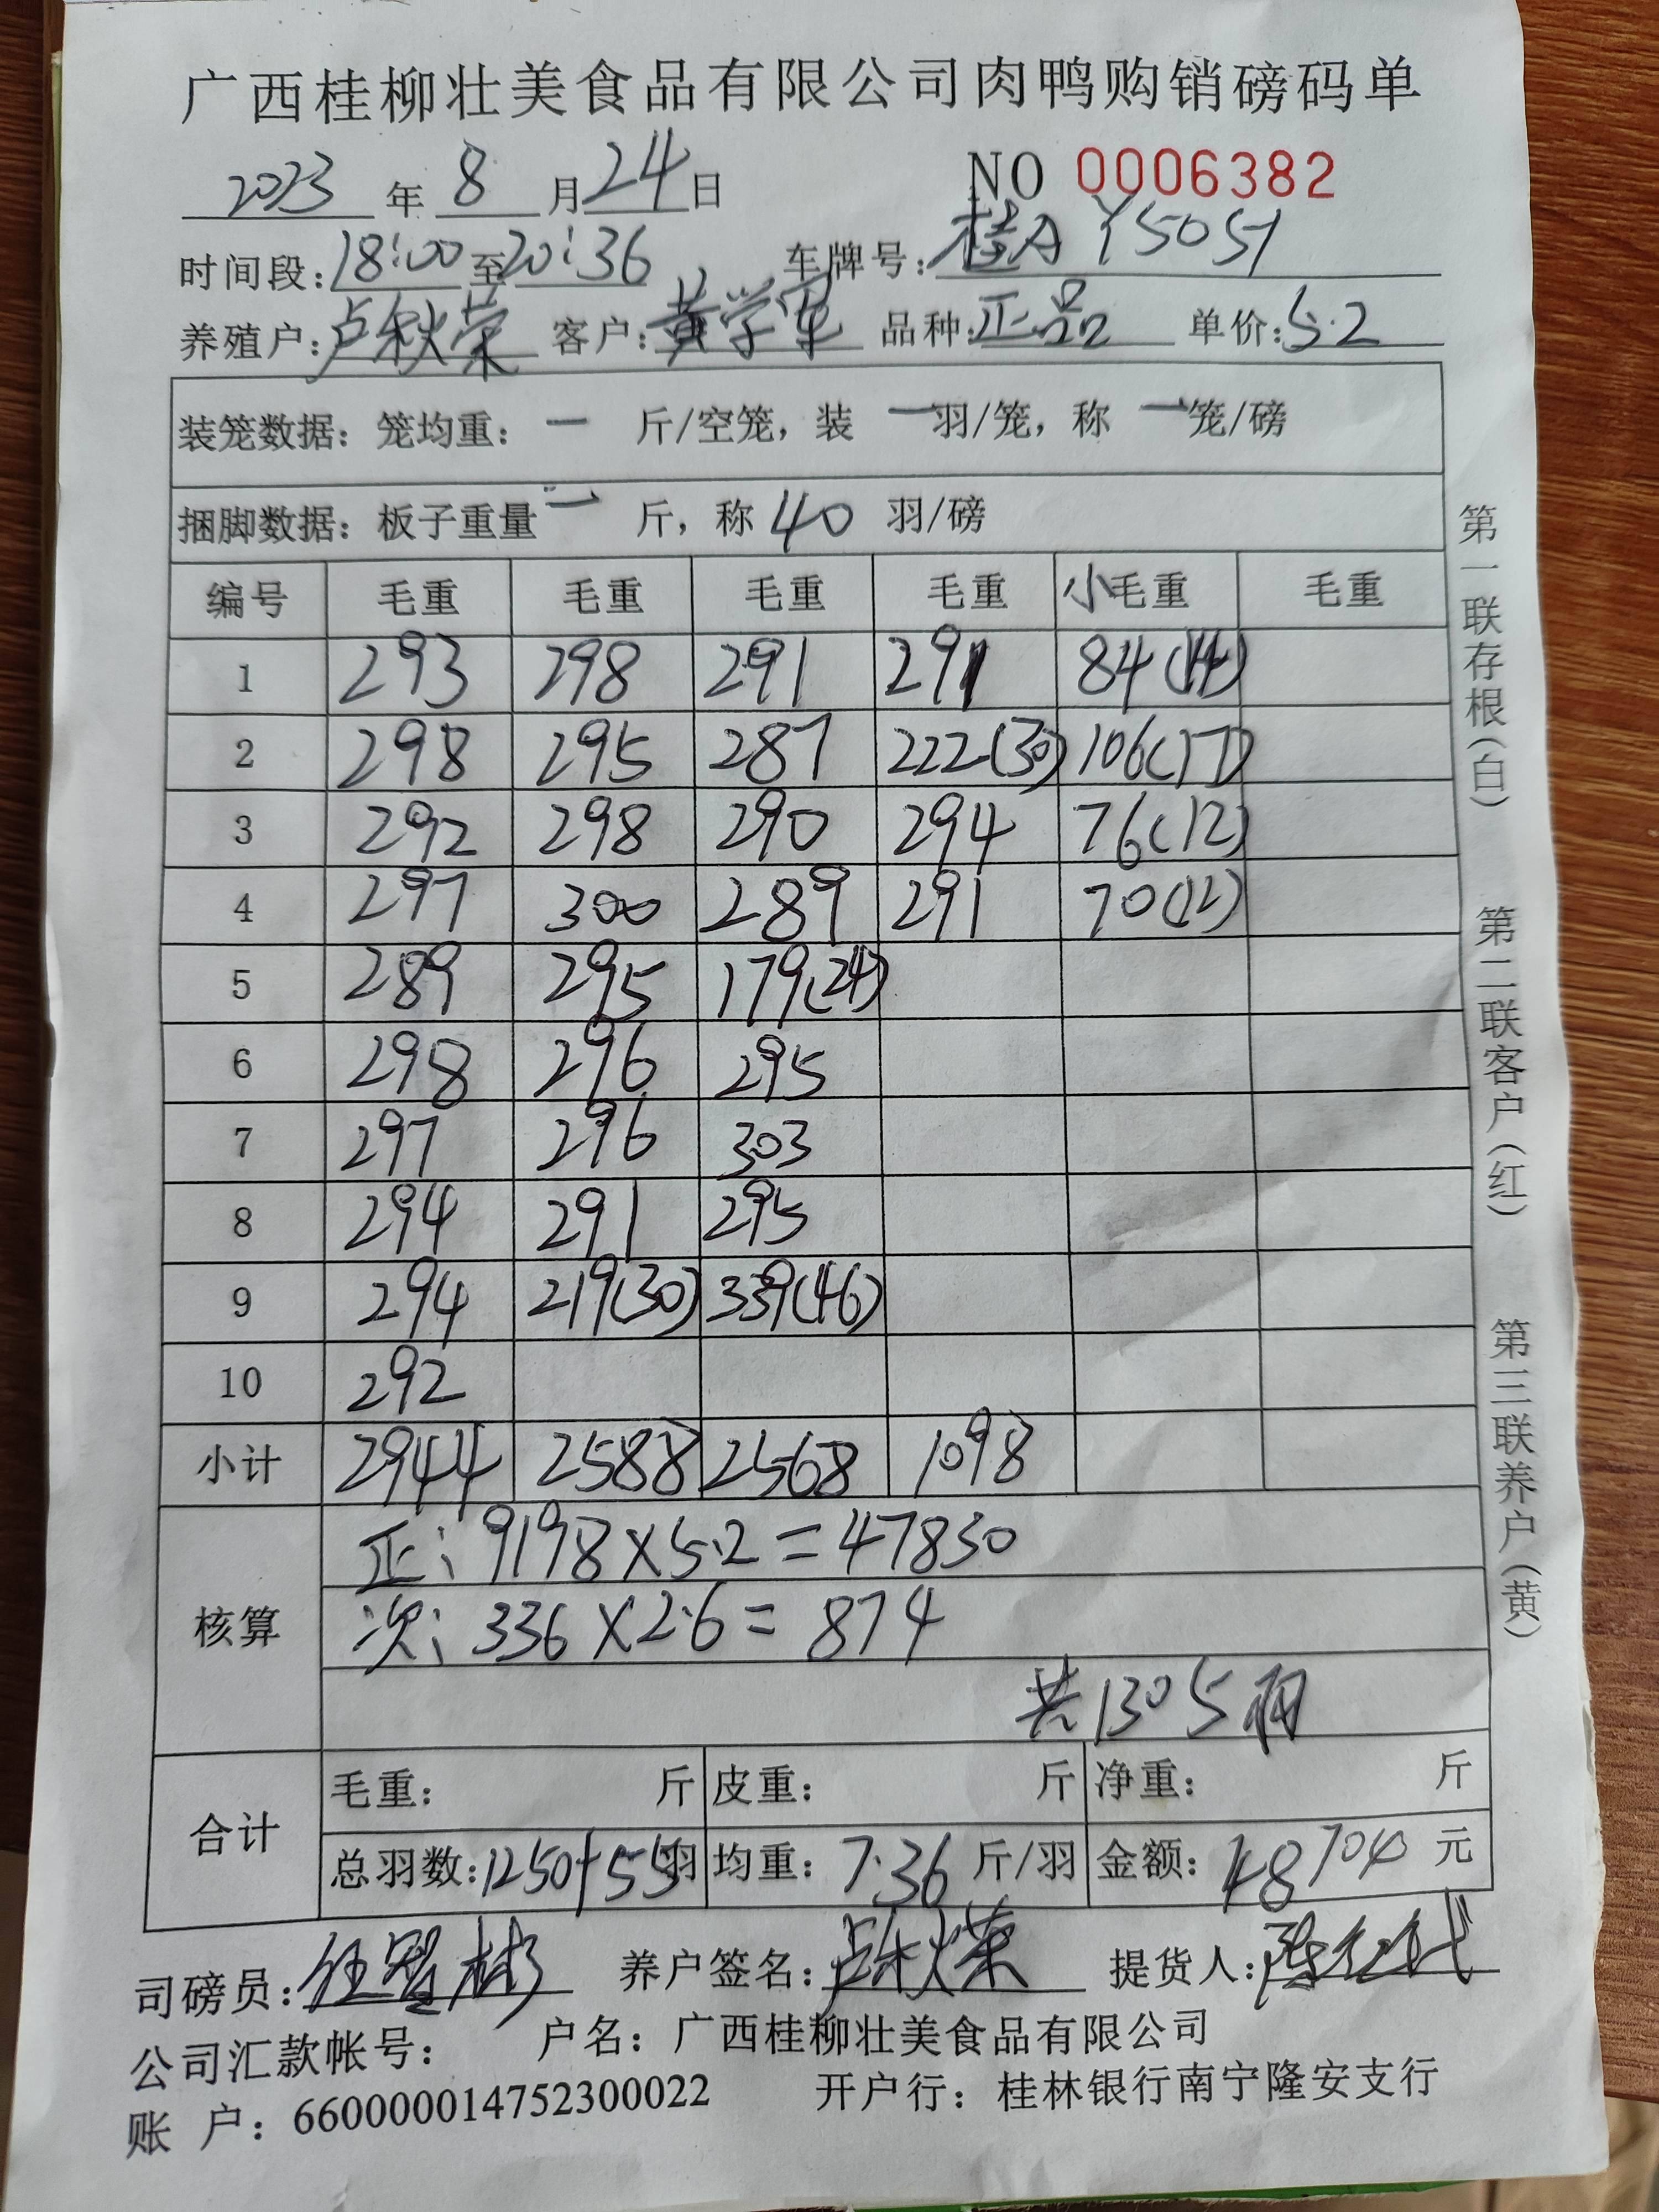 广西桂柳壮美食品有限公司肉鸭购销磅码单
2023年 8月24日 NO 0006382
时间段:18:00至20:36 车牌号:桂A Y5051
养殖户:卢秋荣 客户:黄学军 品种:正品 单价:5.2
装笼数据：笼均重：一 斤/空笼，装 一羽/笼，称 一笼/磅
捆脚数据：板子重量 一 斤，称 40 羽/磅
编号 毛重 毛重 毛重 毛重 小毛重 毛重
1 293 298 291 291 84(14)
2 298 295 287 222(30) 106(17)
3 292 298 290 294 76(12)
4 297 300 289 291 70(12)
5 289 295 179(24)
6 298 296 295
7 297 296 303
8 294 291 295
9 294 219(30) 339(46)
10 292
小计 2944 2588 2568 1098
核算
正：9198×5.2=47830
次：336×2.6=874
共1305羽
合计
毛重： 斤 皮重： 斤 净重： 斤
总羽数:1250+55羽 均重：7.36 斤/羽 金额：48704 元
司磅员: 养户签名:卢秋荣 提货人:
公司汇款帐号： 户名：广西桂柳壮美食品有限公司
账 户：660000014752300022 开户行：桂林银行南宁隆安支行
第一联存根(白)
第二联客户(红)
第三联养户(黄)